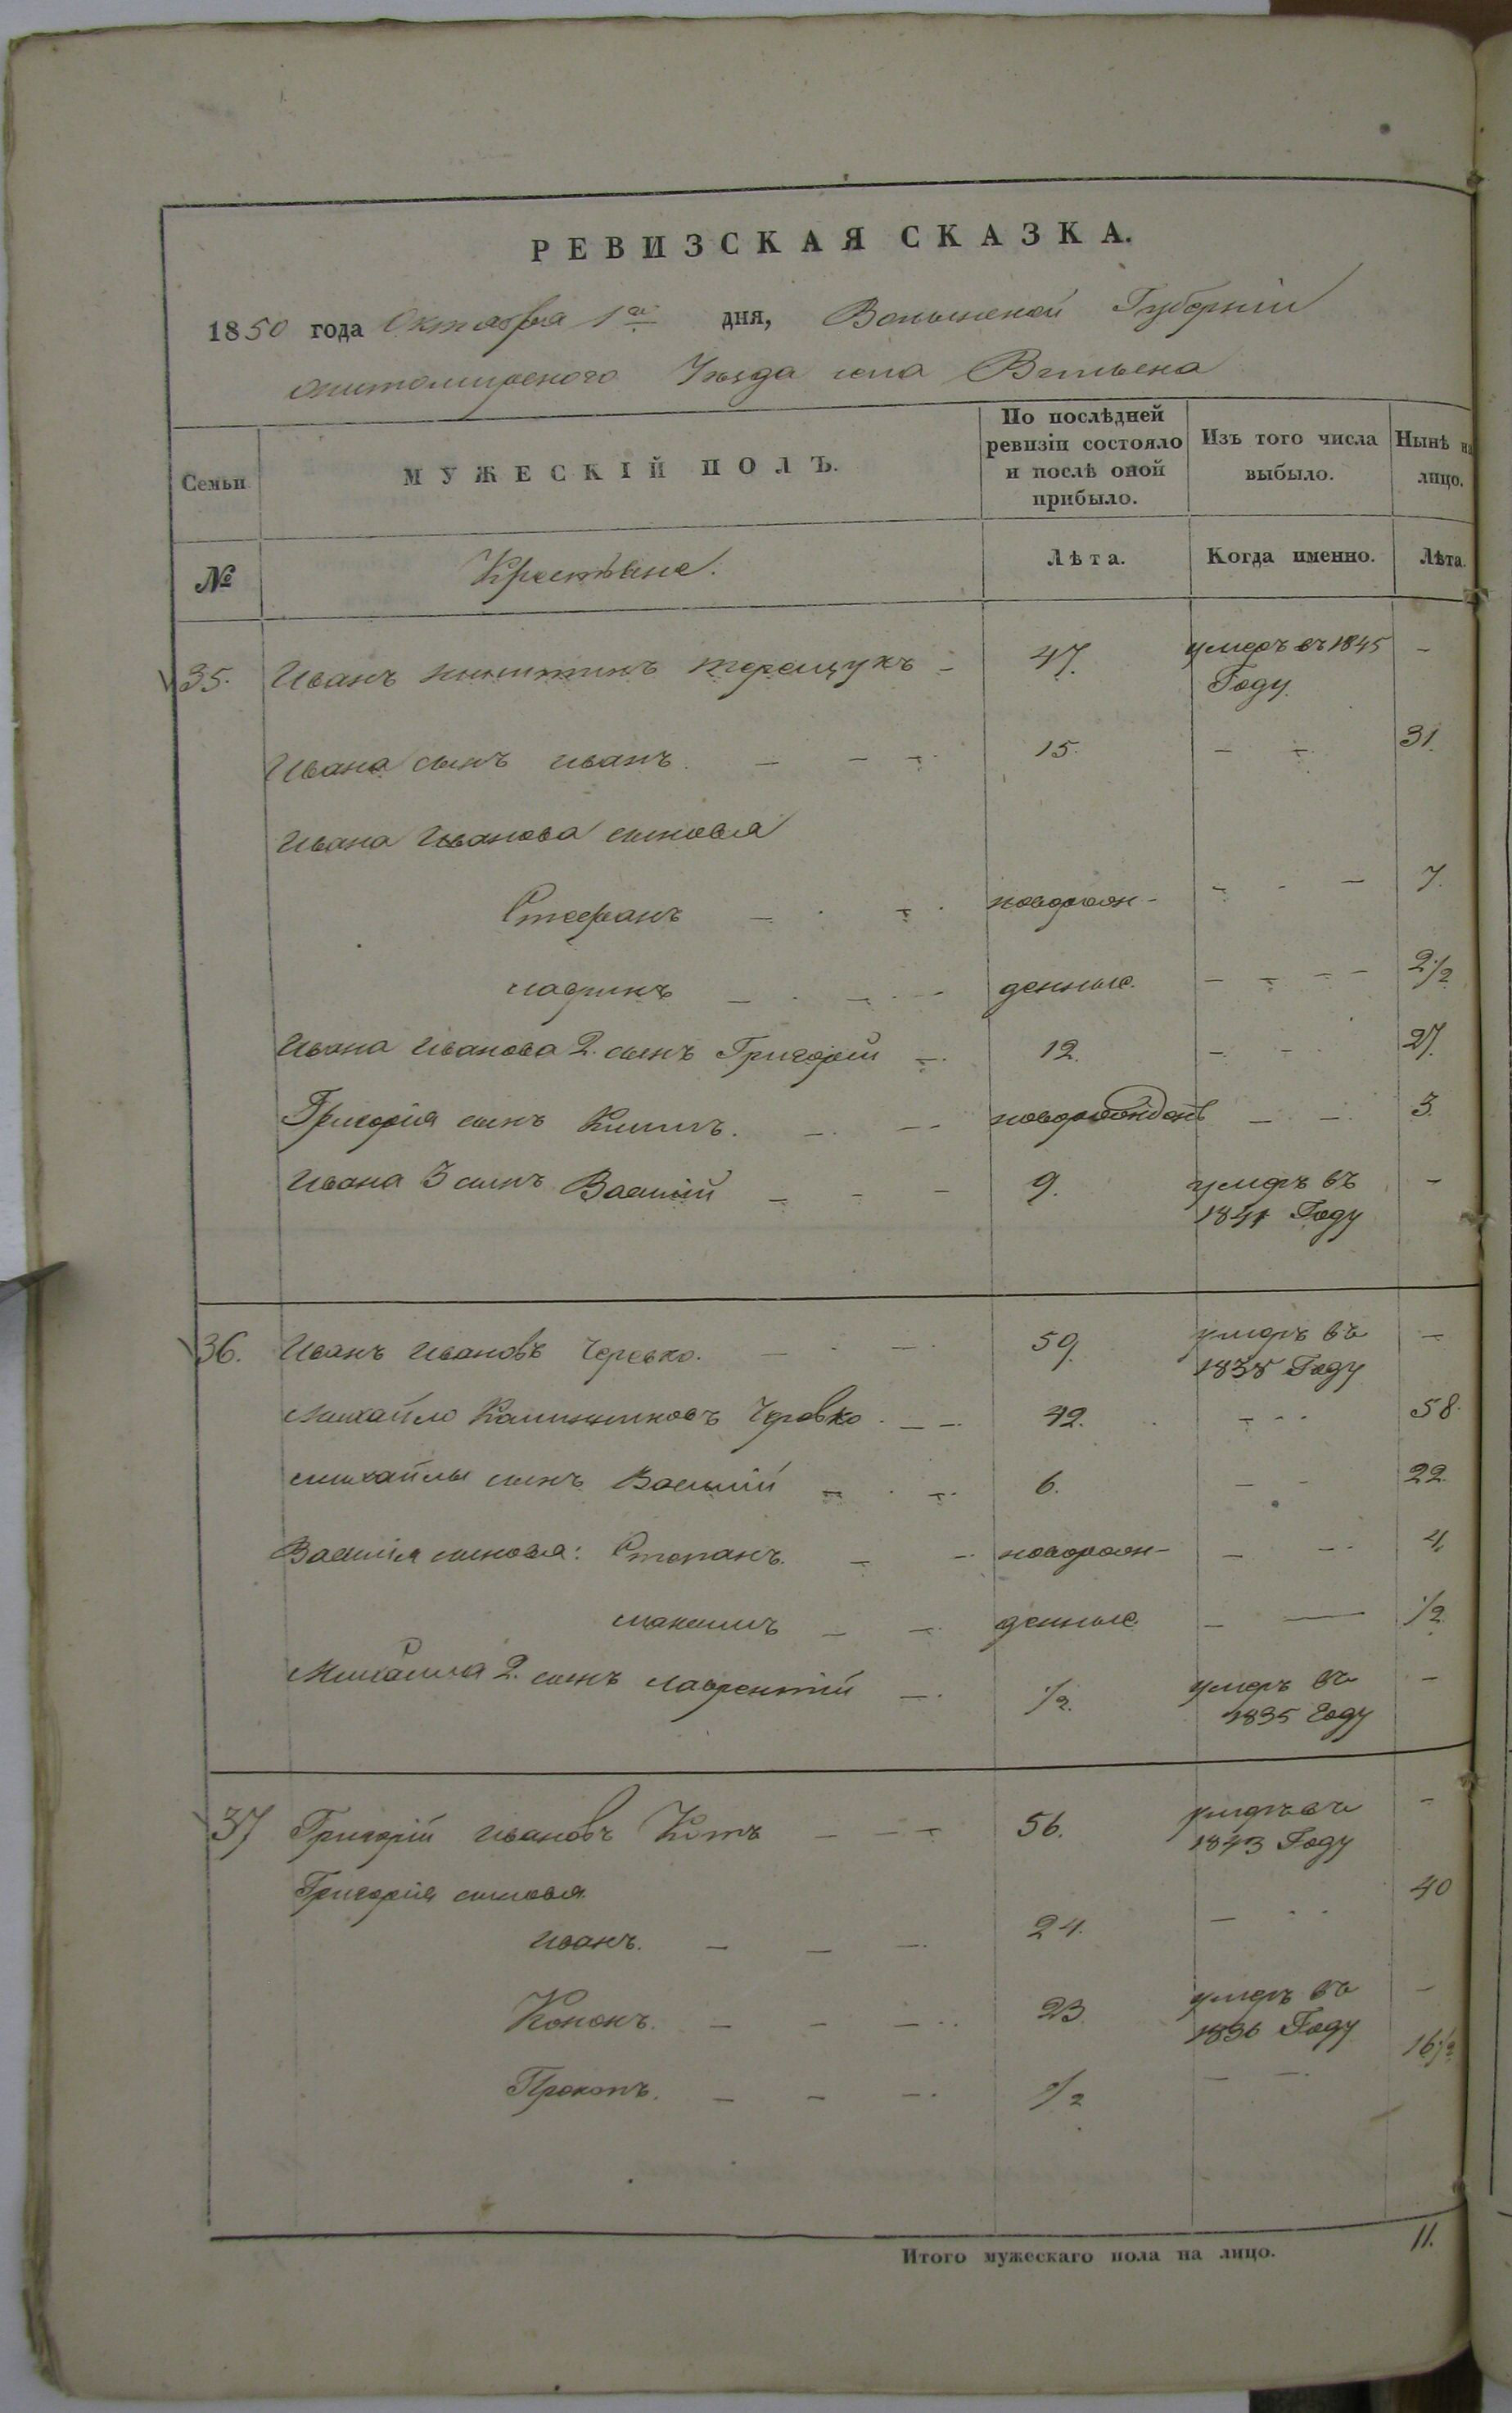 РЕВИЗСКАЯ СКАЗКА.
1850 года Октября 1го дня, Волынской Губерніи
Житомирского Уѣзда села
Семьи
МУЖЕСКІЙ ПОЛЪ.
По послѣдней ревизіи состояло и послѣ оной прибыло.
Изъ того числа выбыло.
Нынѣ на лицо.
№ Крестьяне. Лѣта. Когда именно. Лѣта.
35. Иванъ Никитинъ Терещукъ - 47. умеръ въ 1845 -
Году
Ивана сынъ Иванъ. - - - 15. - - 31.
Ивана Иванова сыновья
Стефанъ - - - новорож- - - - 7.
- - - денные. - - - - 2 1/2
Ивана Иванова 2. сынъ Григорій - 12. - - 27.
Григорія сынъ Климъ. - - новорожденъ - - 3.
Ивана 3 сынъ Василій - - - 9. умеръ въ -
1841 Году
36. Иванъ Ивановъ Черевко. - - - 59. умеръ въ -
1838 Году
Михайло Черевко - - 42. - - - 58.
Михайлы сынъ Василій - - - 6. - - 22.
Василія сыновья: Степанъ. - - новорож- - - - 4.
Максимъ - - денные. - - 1/2
Михайла 2. сынъ Лаврентій - 1/2. умеръ въ -
1835 Году
37 Григорій Ивановъ Котъ - - - 56. умеръ въ -
1843 Году
Григорія сыновья
Иванъ. - - - 24. - - - 40
Кононъ. - - - 23. умеръ въ -
1836 Году
Прокопъ. - - - 1/2 - - 16 1/2
Итого мужескаго пола на лицо. 11.